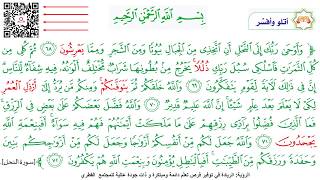 أتلو وأفسّر
بِسْمِ اللَّهِ الرَّحْمَٰنِ الرَّحِيمِ
﴿ وَأَوْحَىٰ رَبُّكَ إِلَى النَّحْلِ أَنِ اتَّخِذِي مِنَ الْجِبَالِ بُيُوتًا وَمِنَ الشَّجَرِ وَمِمَّا يَعْرِشُونَ ٦٨ ثُمَّ كُلِي مِن
كُلِّ الثَّمَرَاتِ فَاسْلُكِي سُبُلَ رَبِّكِ ذُلُلًا يَخْرُجُ مِن بُطُونِهَا شَرَابٌ مُّخْتَلِفٌ أَلْوَانُهُ فِيهِ شِفَاءٌ لِّلنَّاسِ
إِنَّ فِي ذَٰلِكَ لَآيَةً لِّقَوْمٍ يَتَفَكَّرُونَ ٦٩ وَاللَّهُ خَلَقَكُمْ ثُمَّ يَتَوَفَّاكُمْ وَمِنكُم مَّن يُرَدُّ إِلَىٰ أَرْذَلِ الْعُمُرِ
لِكَيْ لَا يَعْلَمَ بَعْدَ عِلْمٍ شَيْئًا إِنَّ اللَّهَ عَلِيمٌ قَدِيرٌ ٧٠ وَاللَّهُ فَضَّلَ بَعْضَكُمْ عَلَىٰ بَعْضٍ فِي الرِّزْقِ
فَمَا الَّذِينَ فُضِّلُوا بِرَادِّي رِزْقِهِمْ عَلَىٰ مَا مَلَكَتْ أَيْمَانُهُمْ فَهُمْ فِيهِ سَوَاءٌ أَفَبِنِعْمَةِ اللَّهِ
يَجْحَدُونَ ٧١ وَاللَّهُ جَعَلَ لَكُم مِّنْ أَنفُسِكُمْ أَزْوَاجًا وَجَعَلَ لَكُم مِّنْ أَزْوَاجِكُم بَنِينَ
وَحَفَدَةً وَرَزَقَكُم مِّنَ الطَّيِّبَاتِ أَفَبِالْبَاطِلِ يُؤْمِنُونَ وَبِنِعْمَتِ اللَّهِ هُمْ يَكْفُرُونَ ٧٢ ﴾ [سورة النحل]
الرؤية: الريادة في توفير فرص تعلم دائمة ومبتكرة و ذات جودة عالية للمجتمع القطري